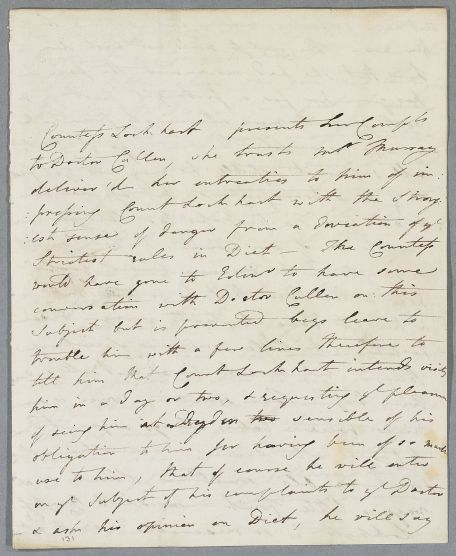 Countess Lockhart presents her Compts
to Doctor Cullen, she trusts Mrs Murray
deliver'd her entreaties to him of im:
:pressing Count Lockhart with the Strong
:est sense of danger from a Deviation of ye
Strictest rules in Diet — The Countess
would have gone to Edinr to have some
conversation with Doctor Cullen on this
Subject but is prevented begs leave to
trouble him with a few lines therefore to
tell him that Count Lockhart intends visiting
him in a day or two, & requesting ye pleasure
of seing him sensible of his
obligation to him for having been of so much
use to him, that of course he will enter
on ye Subject of his complaints to ye Doctor
& ask his opinion on Diet, he will say
131